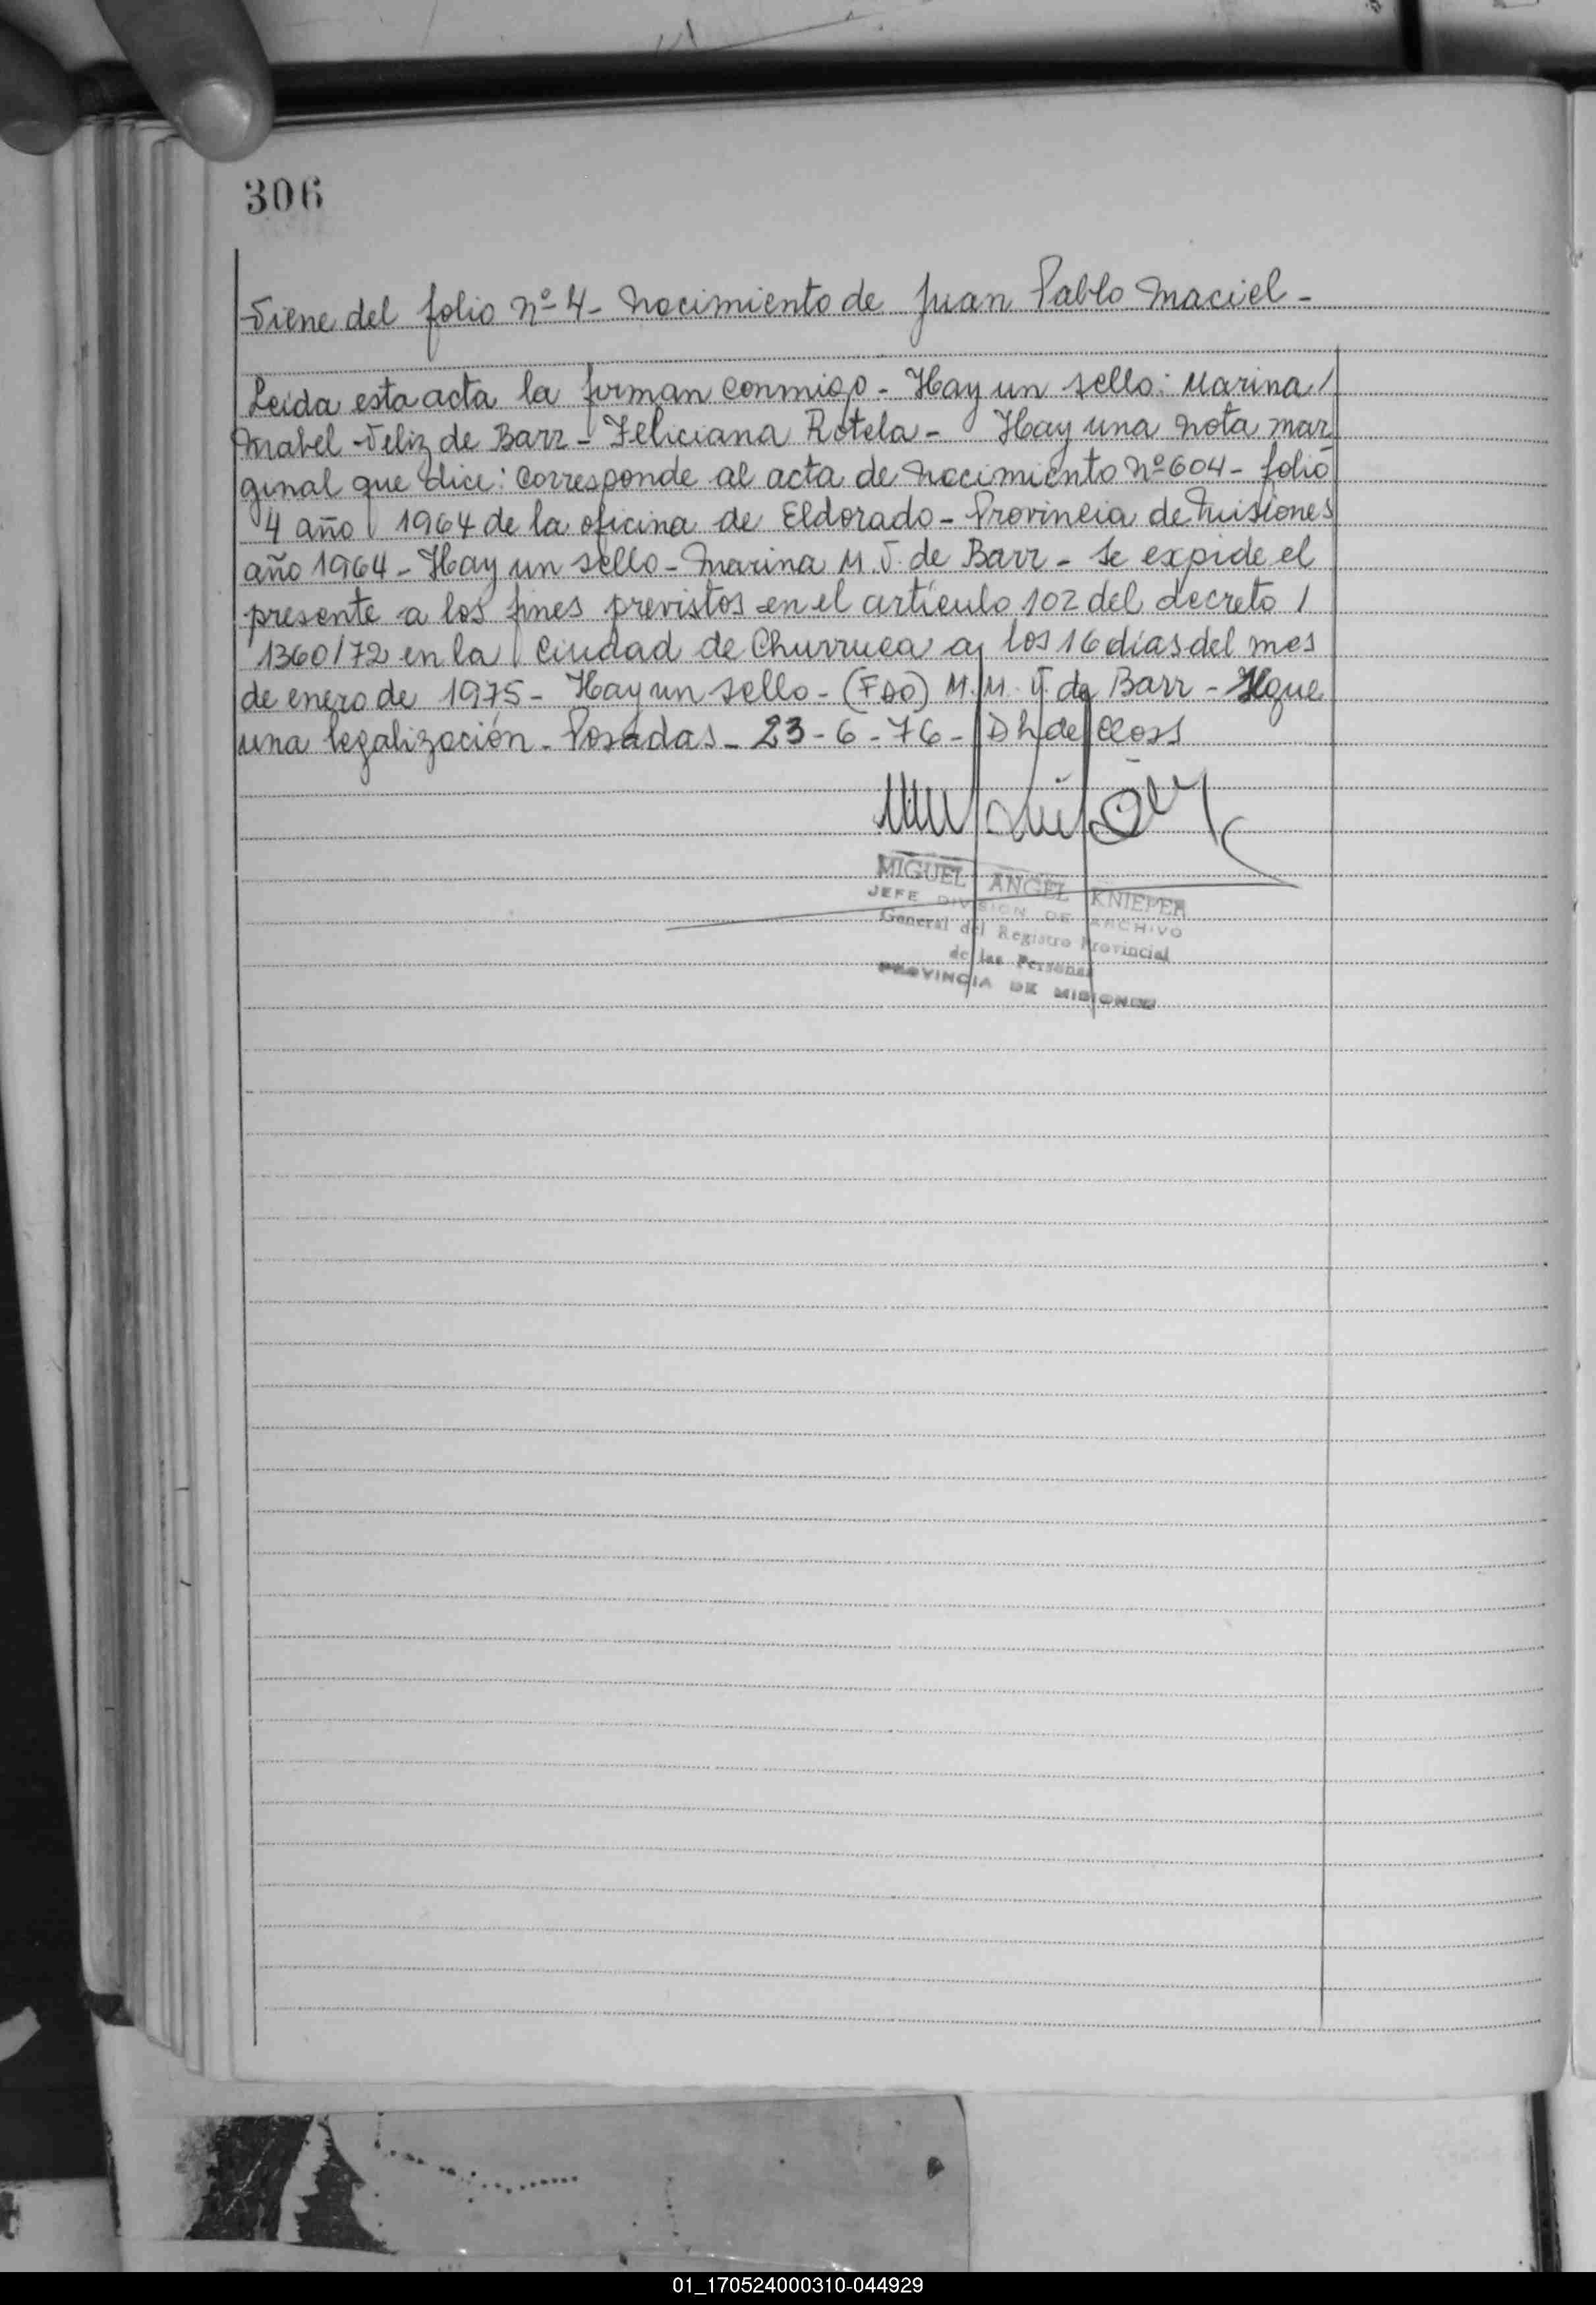 306
Viene del folio nº 4 - Nacimiento de Juan Pablo Maciel -
Leída esta acta la firman conmigo - Hay un sello: Marina /
Mabel Veliz de Barr - Feliciana Rotela - Hay una nota mar
ginal que dice: corresponde al acta de nacimiento nº 604 - folio
4 año 1964 de la oficina de Eldorado - Provincia de Misiones
año 1964 - Hay un sello - Marina M. V. de Barr - Se expide el
presente a los fines previstos en el artículo 102 del decreto /
1360/72 en la ciudad de Churruca a los 16 días del mes
de enero de 1975 - Hay un sello - (FDO) M. M. V. de Barr - Sigue
una legalización - Posadas - 23 - 6 - 76 - D h de Closs
MIGUEL ANGEL KNIEPER
JEFE DIVISION DE ARCHIVO
General del Registro Provincial
de las Personas
PROVINCIA DE MISIONES
01_170524000310-044929